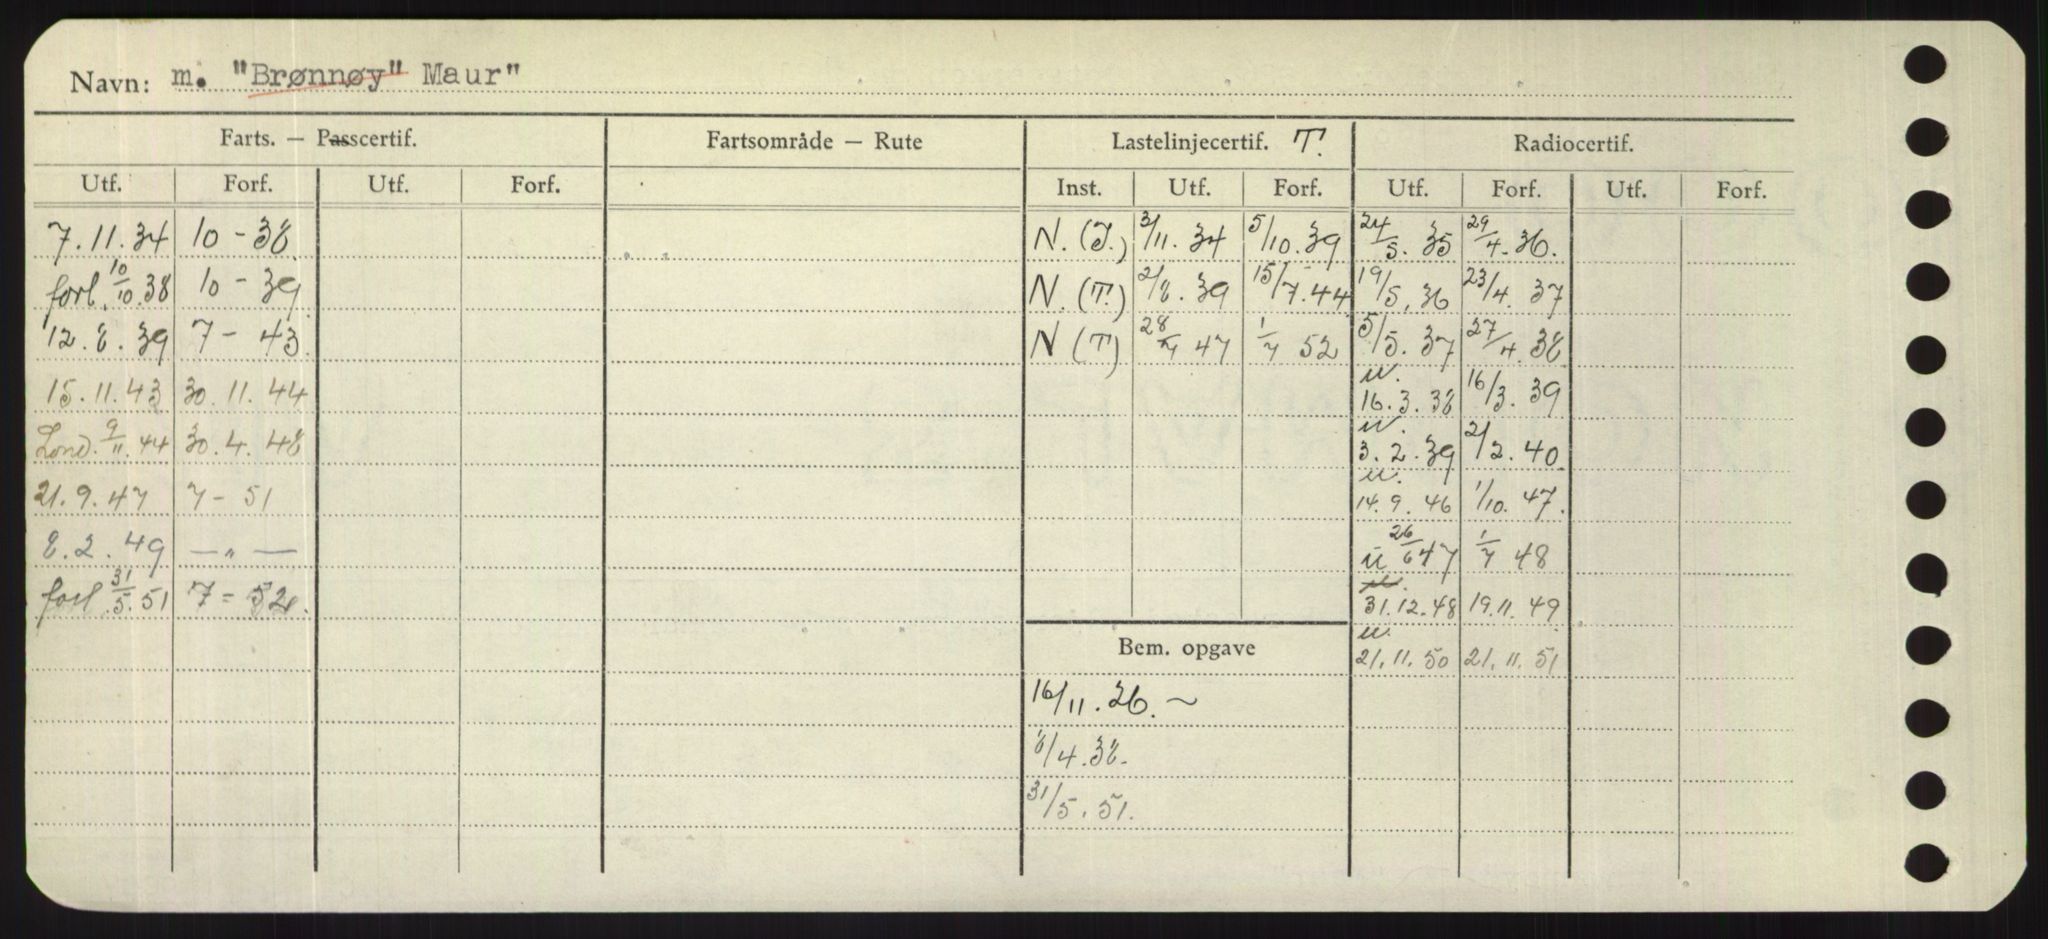 Navn: m. "Brønnøy" Maur"
Farts. — Passcertif. Fartsområde — Rute Lastelinjecertif. T. Radiocertif.
Utf. Forf. Utf. Forf. Inst. Utf. Forf. Utf. Forf. Utf. Forf.
7.11.34 10 - 38. N. (T.) 3/11. 34 5/10. 39 24/5. 35 29/4. 36.
forl. 10/10. 38 10 - 39. N. (T.) 2/8. 39 15/7. 44 19/5. 36 23/4. 37
12. 8. 39 7 - 43. N (T) 28/7 47 1/7 52 5/5. 37 27/4. 38
15. 11. 43 30. 11. 44 u. 16. 3. 38 16/3. 39
Lond. 9/11. 44 30. 4. 48 u. 3. 2. 39 2/2. 40.
21. 9. 47 7 - 51 u. 14. 9. 46 1/10. 47.
8. 2. 49 — " — u 26/6 47 1/7 48
forl 31/5. 51 7 = 52. u. 31. 12. 48 19. 11. 49
Bem. opgave u. 21. 11. 50 21. 11. 51
16/11. 36. ~
8/4. 38.
31/5. 51.